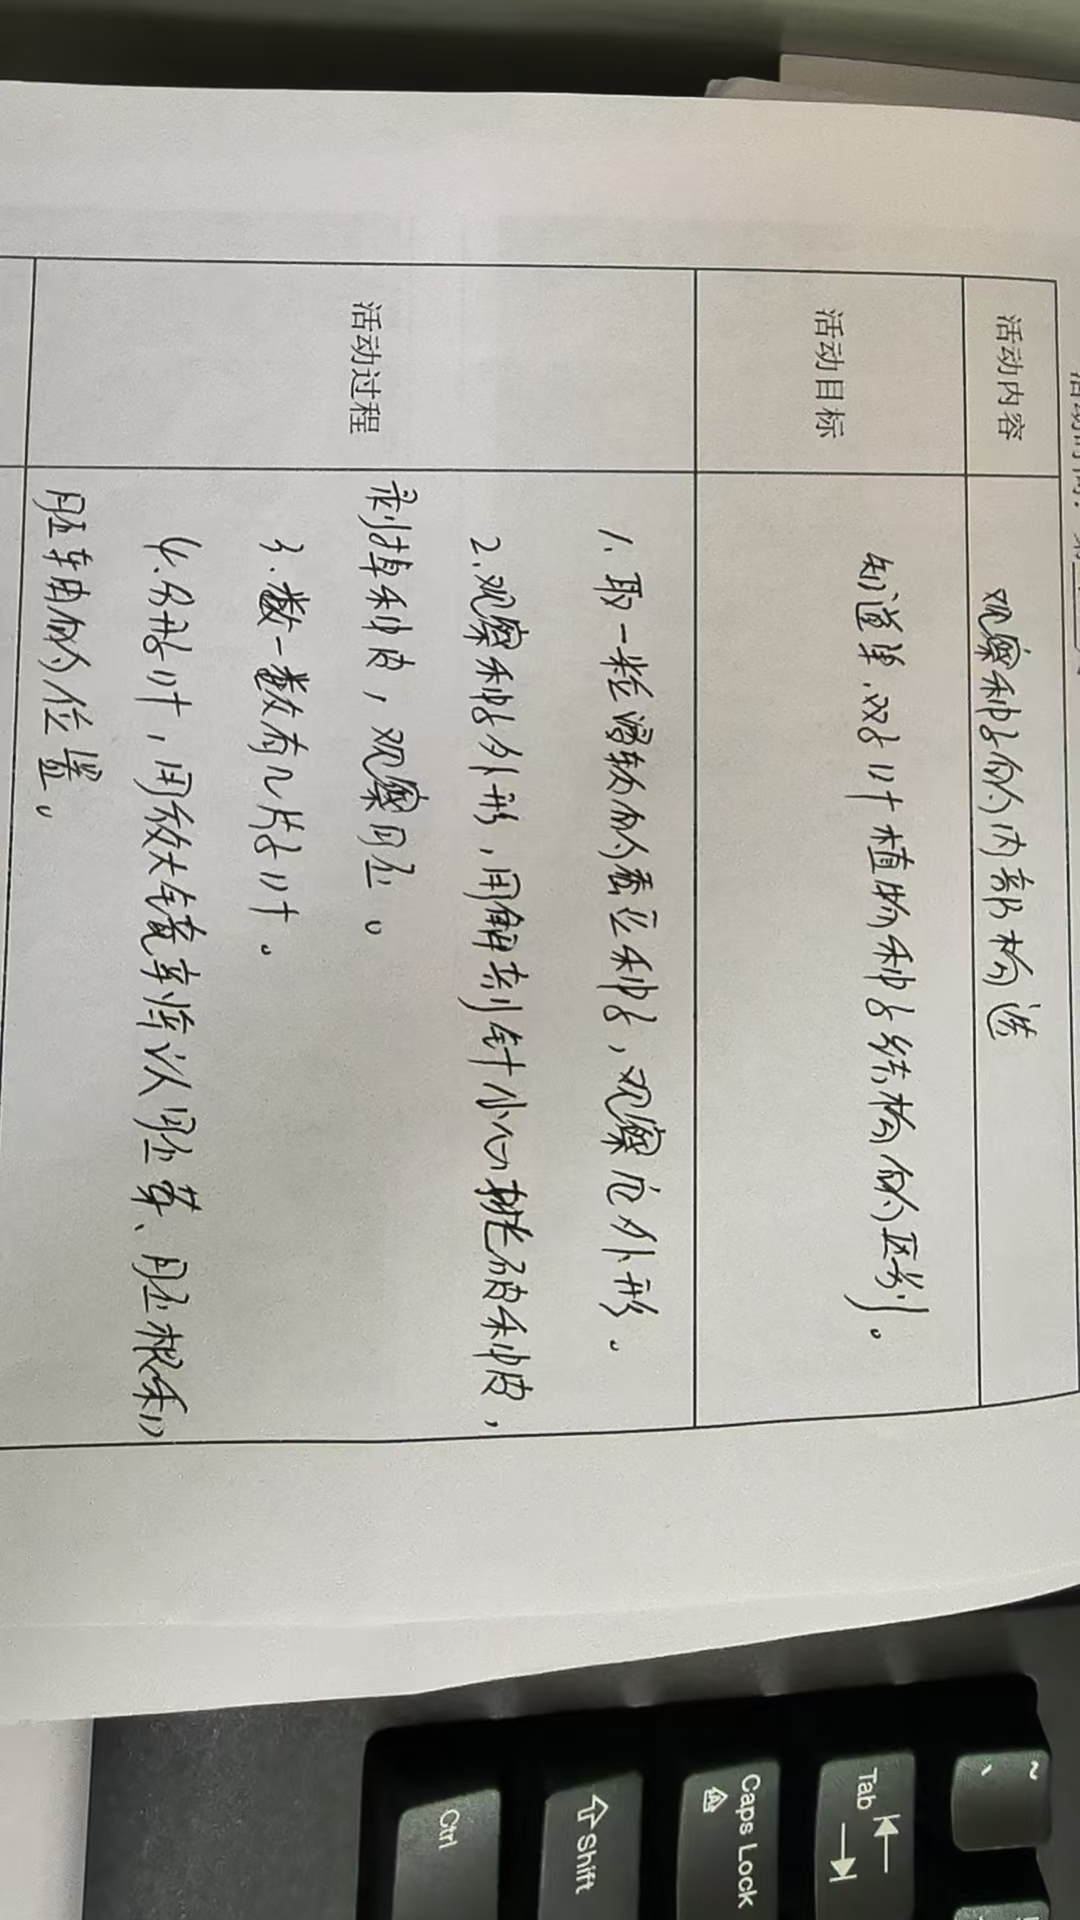 活动内容
观察种子的内部构造
活动目标
知道单、双子叶植物种子结构的区别。
活动过程
1.取一粒浸软的蚕豆种子,观察它外形。
2.观察种子外形,用解剖针小心挑破种皮,
剥掉种皮,观察胚。
3.数一数有几片子叶。
4.分开子叶,用放大镜来辨认胚芽、胚根和
胚轴的位置。
~
Tab
Caps Lock
Shift
Ctrl